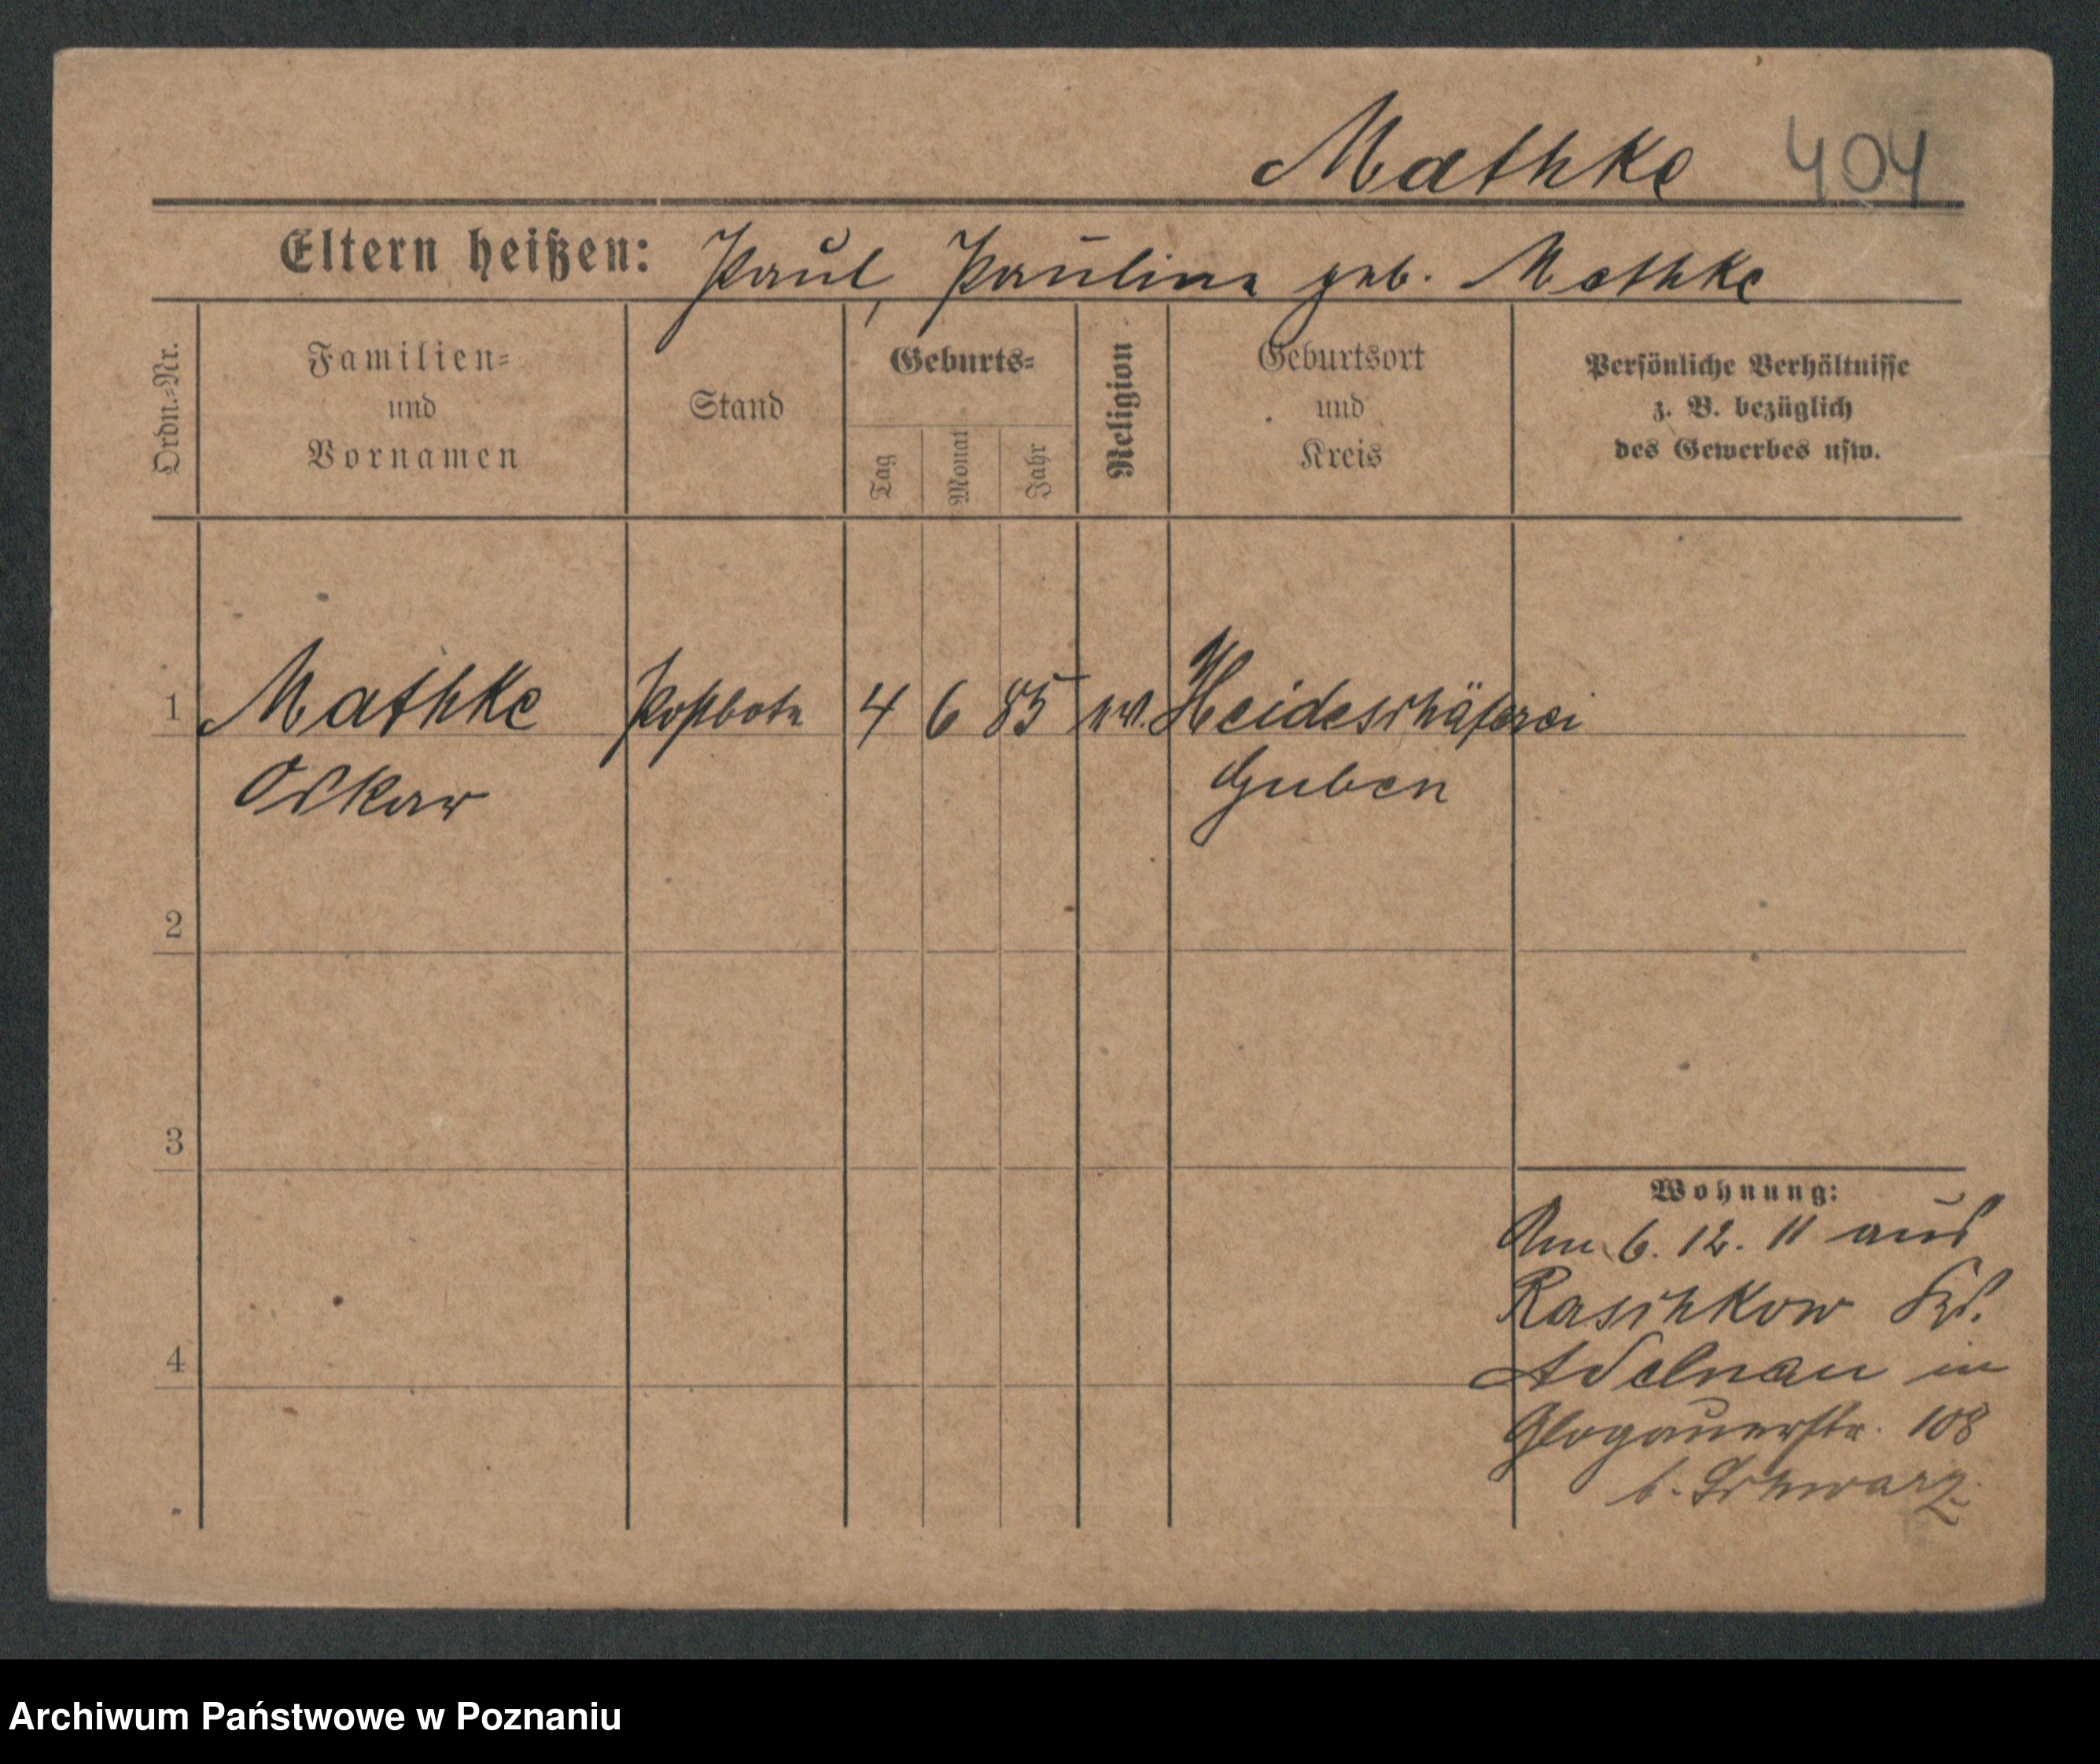 Mathke 404
Eltern heißen: Paul, Pauline geb. Mathke
Ordn.=Nr.
Familien=
und
Vornamen
Stand
Geburts=
Tag
Monat
Jahr
Religion
Geburtsort
und
Kreis
Persönliche Verhältnisse
z. B. bezüglich
des Gewerbes usw.
1 Mathke Postbote 4 6 85 ev. Heideschäferei
Oskar Guben
2
3
Wohnung:
Am 6. 12. 11 aus
Raschkow Krs.
4 Adelnau in
Glogauerstr. 108
b. Schwarz.
Archiwum Państwowe w Poznaniu